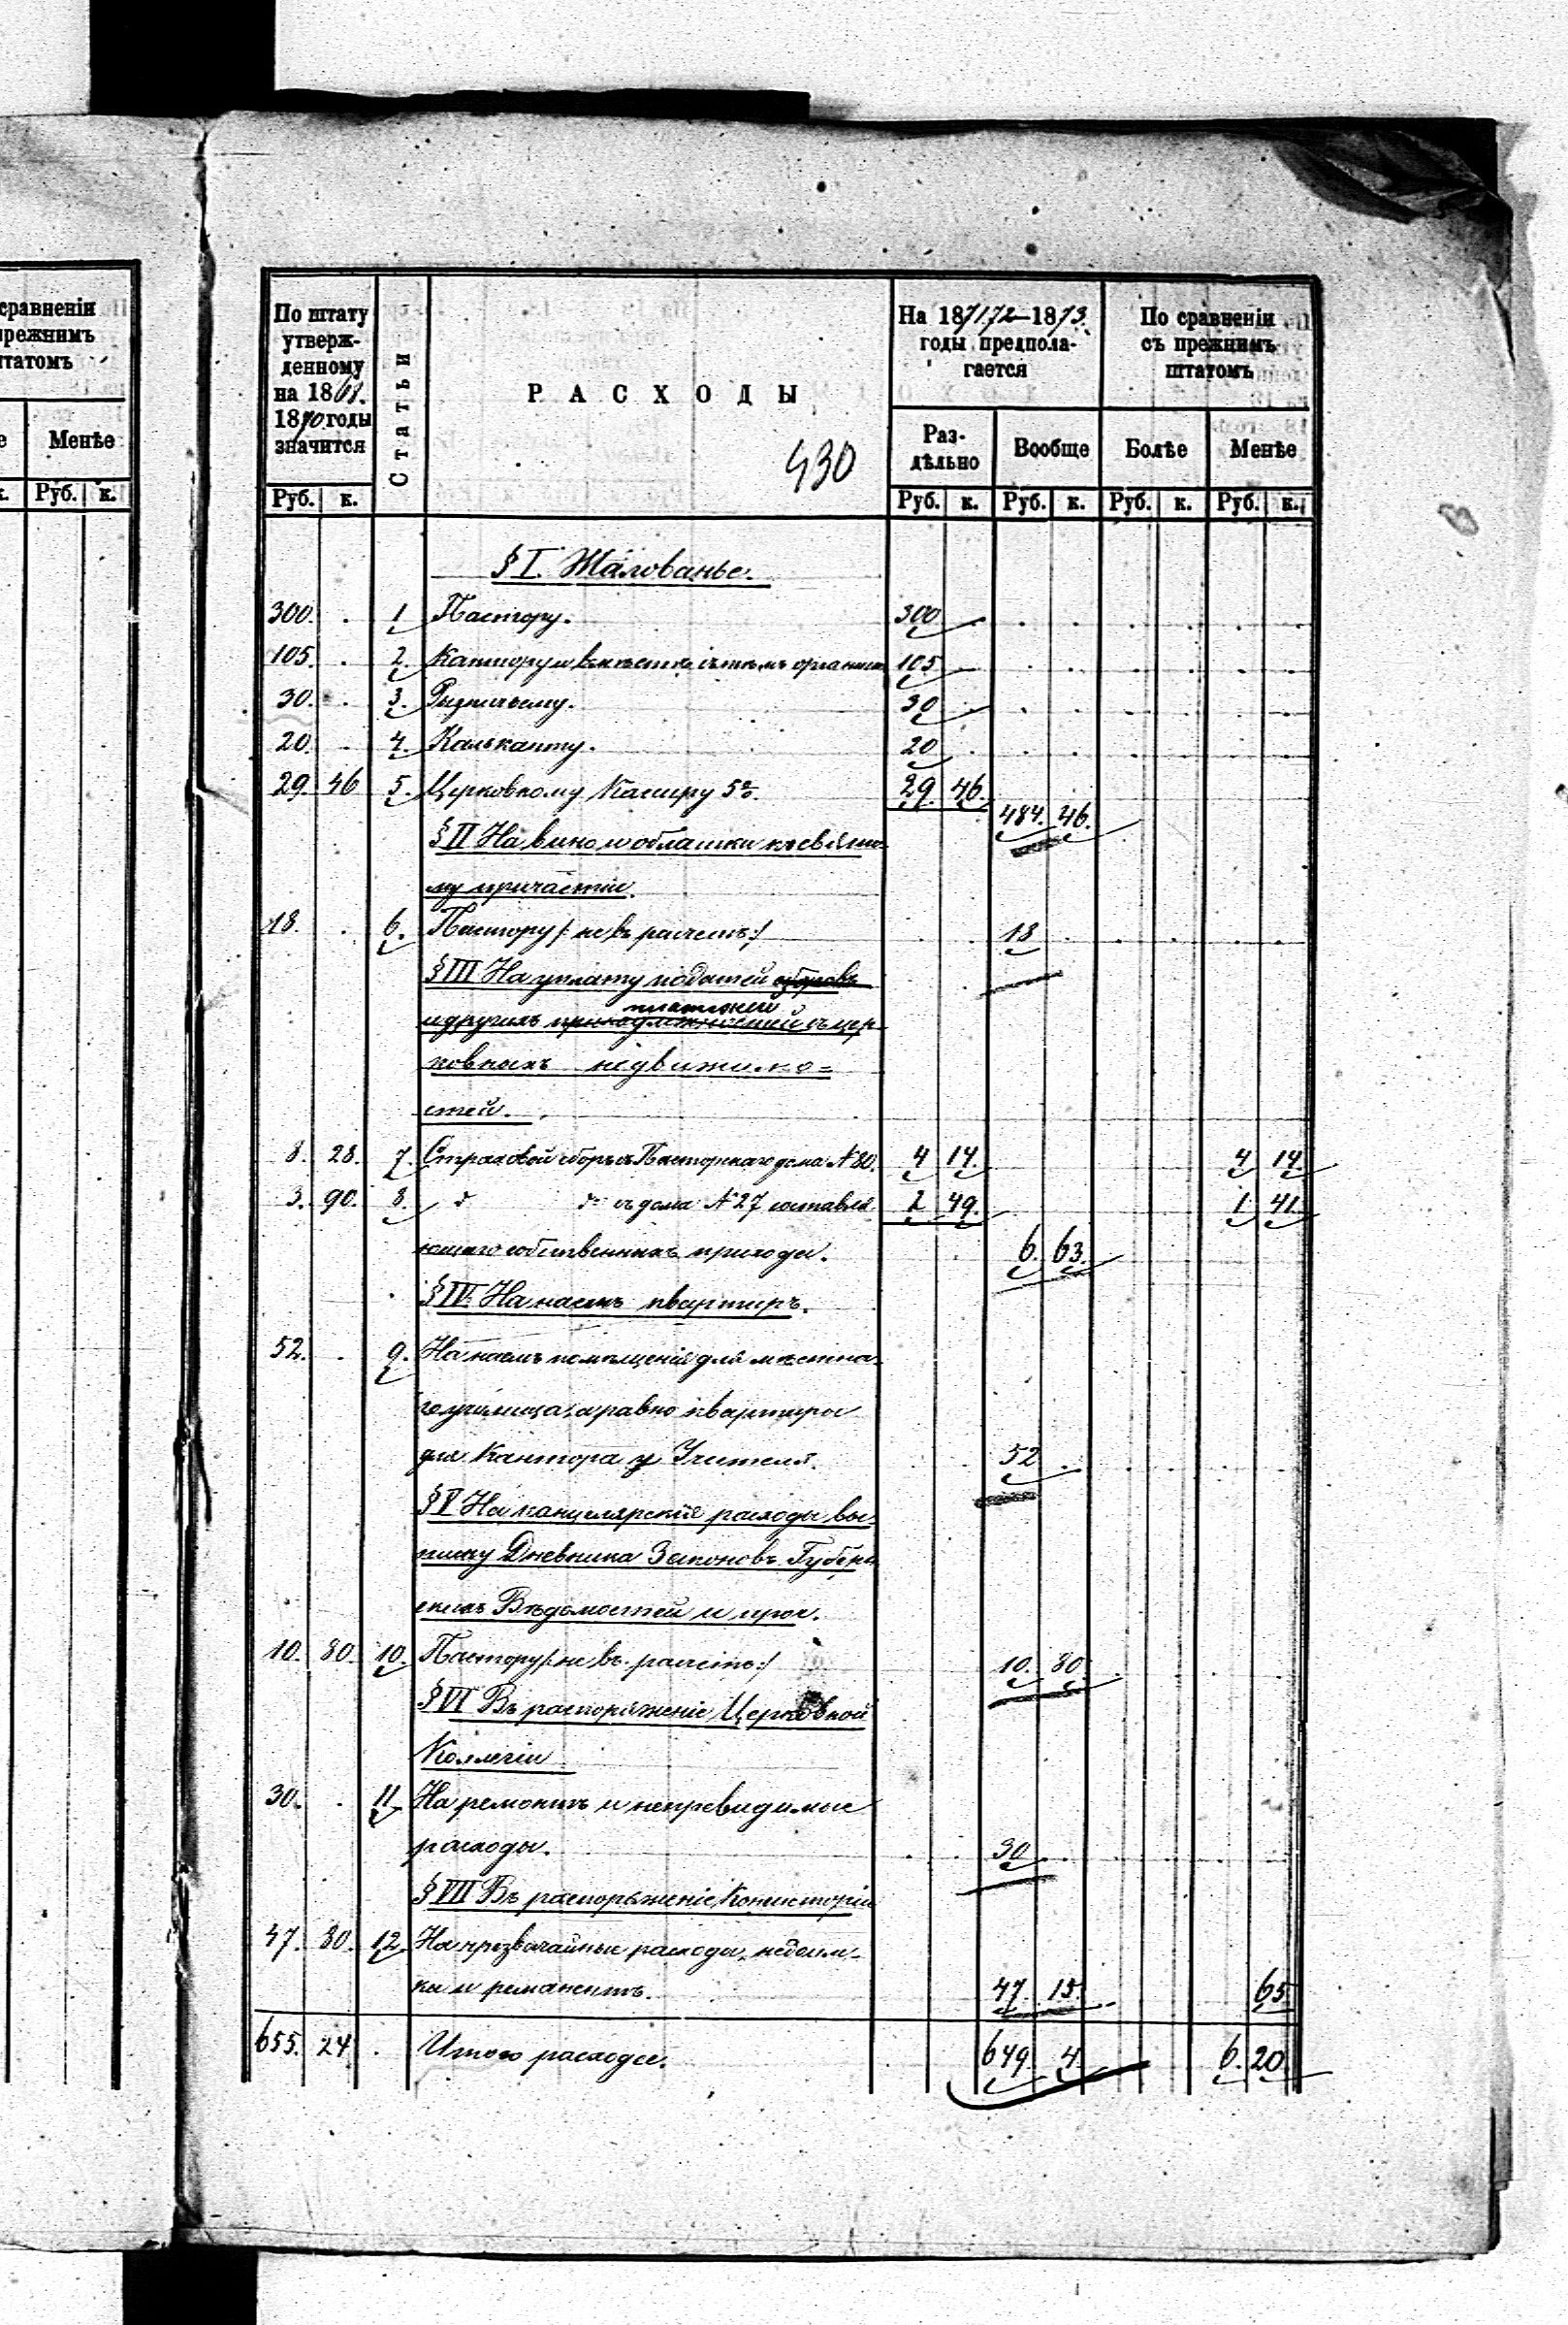 сравненіи
прежнимъ
штатомъ
Менѣе
Руб. к.
По штату
утверж-
денному
на 1868.
1870 годы
значится
Статьи
РАСХОДЫ
430
На 1871/72—1873.
годы предпола-
гается
По сравненіи
съ прежнимъ
штатомъ
Раз-
дѣльно
Вообще
Болѣе
Менѣе
Руб. к. Руб. к. Руб. к. Руб. к. Руб. к.
§ I. Жалованье.
300. . 1 Пастору. 300
105. . 2. Кантору и вмѣстѣ съ тѣмъ органисту 105
30. . 3. Ризничему. 30
20. . 4. Кальканту. 20
29. 46 5. Церковному Касиру 5%. 29. 46.
484. 46.
§ II На вино и облатки къ свято-
му причастію.
18. . 6. Пастору /: не въ расчетъ :/ 18
§ III На уплату податей сборовъ
платежей
и другихъ съ цер-
ковныхъ недвижимо=
стей.
8. 28. 7. Страховой сборъ съ Пасторнаго дома № 80. 4 14. 4 14.
3. 90. 8. d° d° съ дома № 27 составля- 2 49. 1 41.
ющаго собственность прихода. 6. 63.
§ IV. На наемъ квартиръ.
52. . 9. На наемъ помѣщенія для мѣстна-
го училища, а равно квартиры
для Кантора и Учителя. 52
§ V На канцелярскіе расходы вы-
писку Дневника Законовъ Губерн-
скихъ Вѣдомостей и проч.
10. 80. 10. Пастору /: не въ расчетъ :/ 10. 80.
§ VI Въ распоряженіе Церковной
Коллегіи
30. . 11. На ремонтъ и непревидимые
расходы. 30
§ VII Въ распоряженіе Консисторіи
47. 80. 12. На чрезвычайные расходы, недоим-
ки и ремонентъ. 47. 15. 65.
655. 24 . Итого расхода. 649. 4. 6. 20.